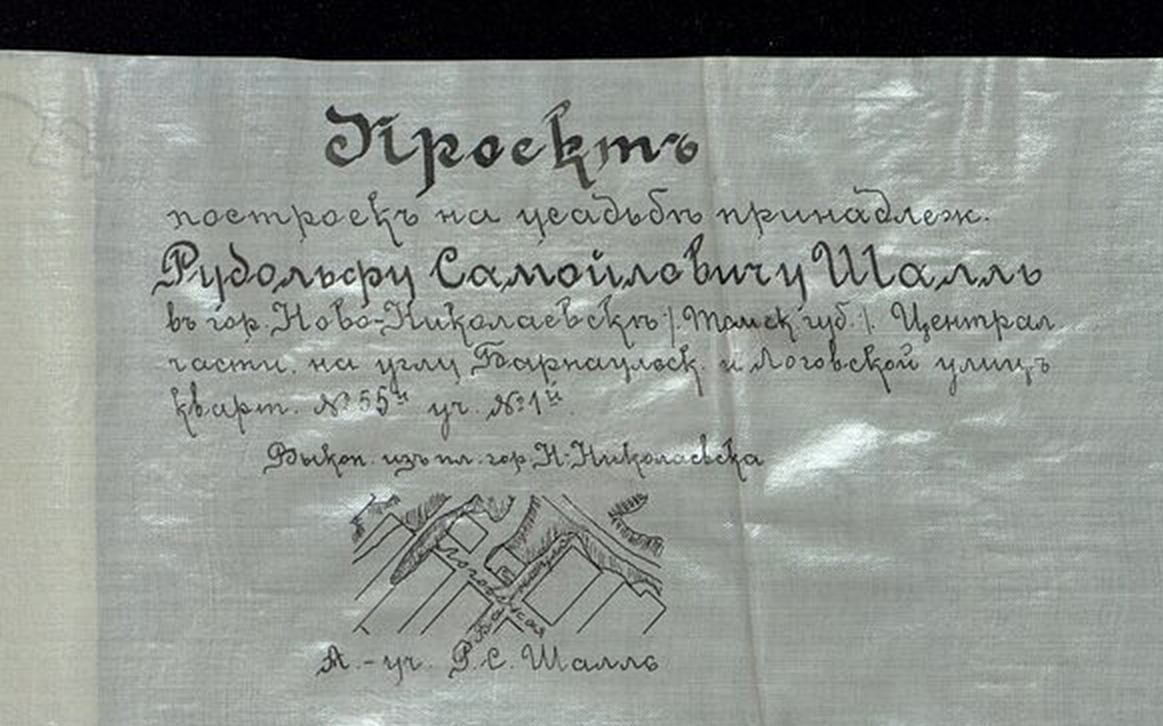 Проектъ
построекъ на усадьбѣ принадлеж.
Рудольфу Самойловичу Шалль
въ гор. Ново-Николаевскѣ /. Томск. губ. /. Централ.
части, на углу Барнаульск. и Логовской улицъ
кварт. № 55й уч. № 1й.
Выкоп. изъ пл. гор. Н-Николаевска
Логовская
А. - уч. Р. С. Шалль